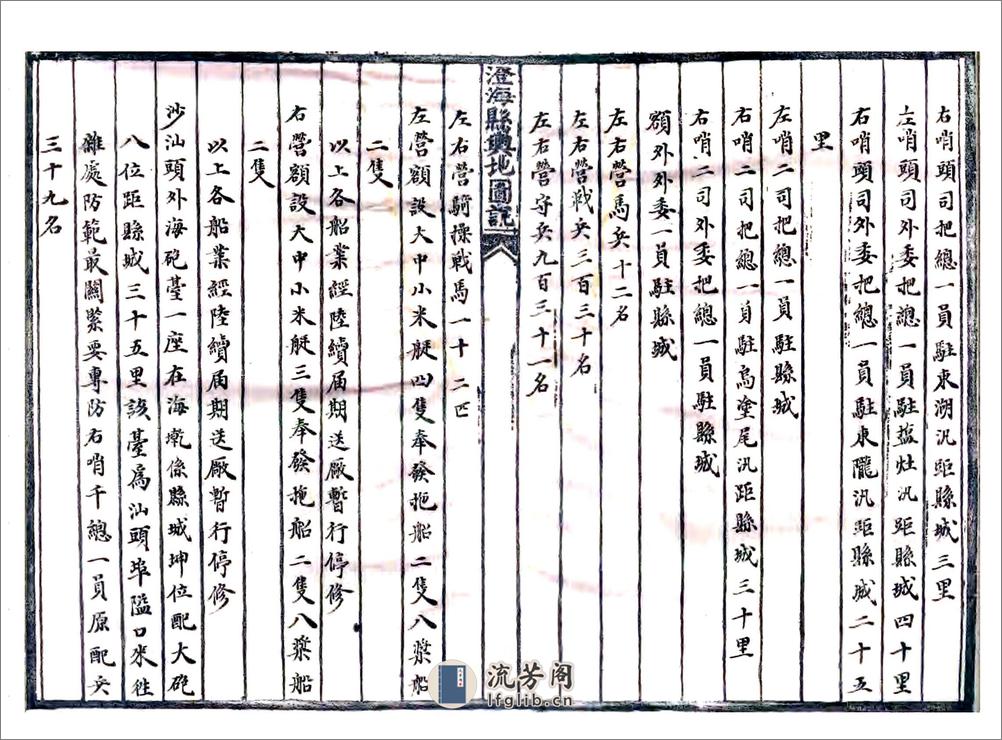 右哨頭司把總一員駐東湖汛距縣城三里
左哨頭司外委把總一員駐盐灶汛距縣城四十里
右哨頭司外委把總一員駐東隴汛距縣城二十五
里
左哨二司把總一員駐縣城
右哨二司把總一員駐烏塗尾汛距縣城三十里
右哨二司外委把總一員駐縣城
額外外委一員駐縣城
左右營馬兵十二名
左右營戰兵三百三十名
左右營守兵九百三十一名
澄海縣輿地圖說
左右營騎操戰馬一十二匹
左營額設大中小米艇四隻奉發拖船二隻八槳船
二隻
以上各船業經陸續届期送厰暫行停修
右營額設大中小米艇三隻奉發拖船二隻八槳船
二隻
以上各船業經陸續届期送厰暫行停修
沙汕頭外海砲臺一座在海墘係縣城坤位配大砲
八位距縣城三十五里該臺為汕頭埠隘口來徃
雜處防範最關緊要專防右哨千總一員原配兵
三十九名
流芳阁
lfglib.cn